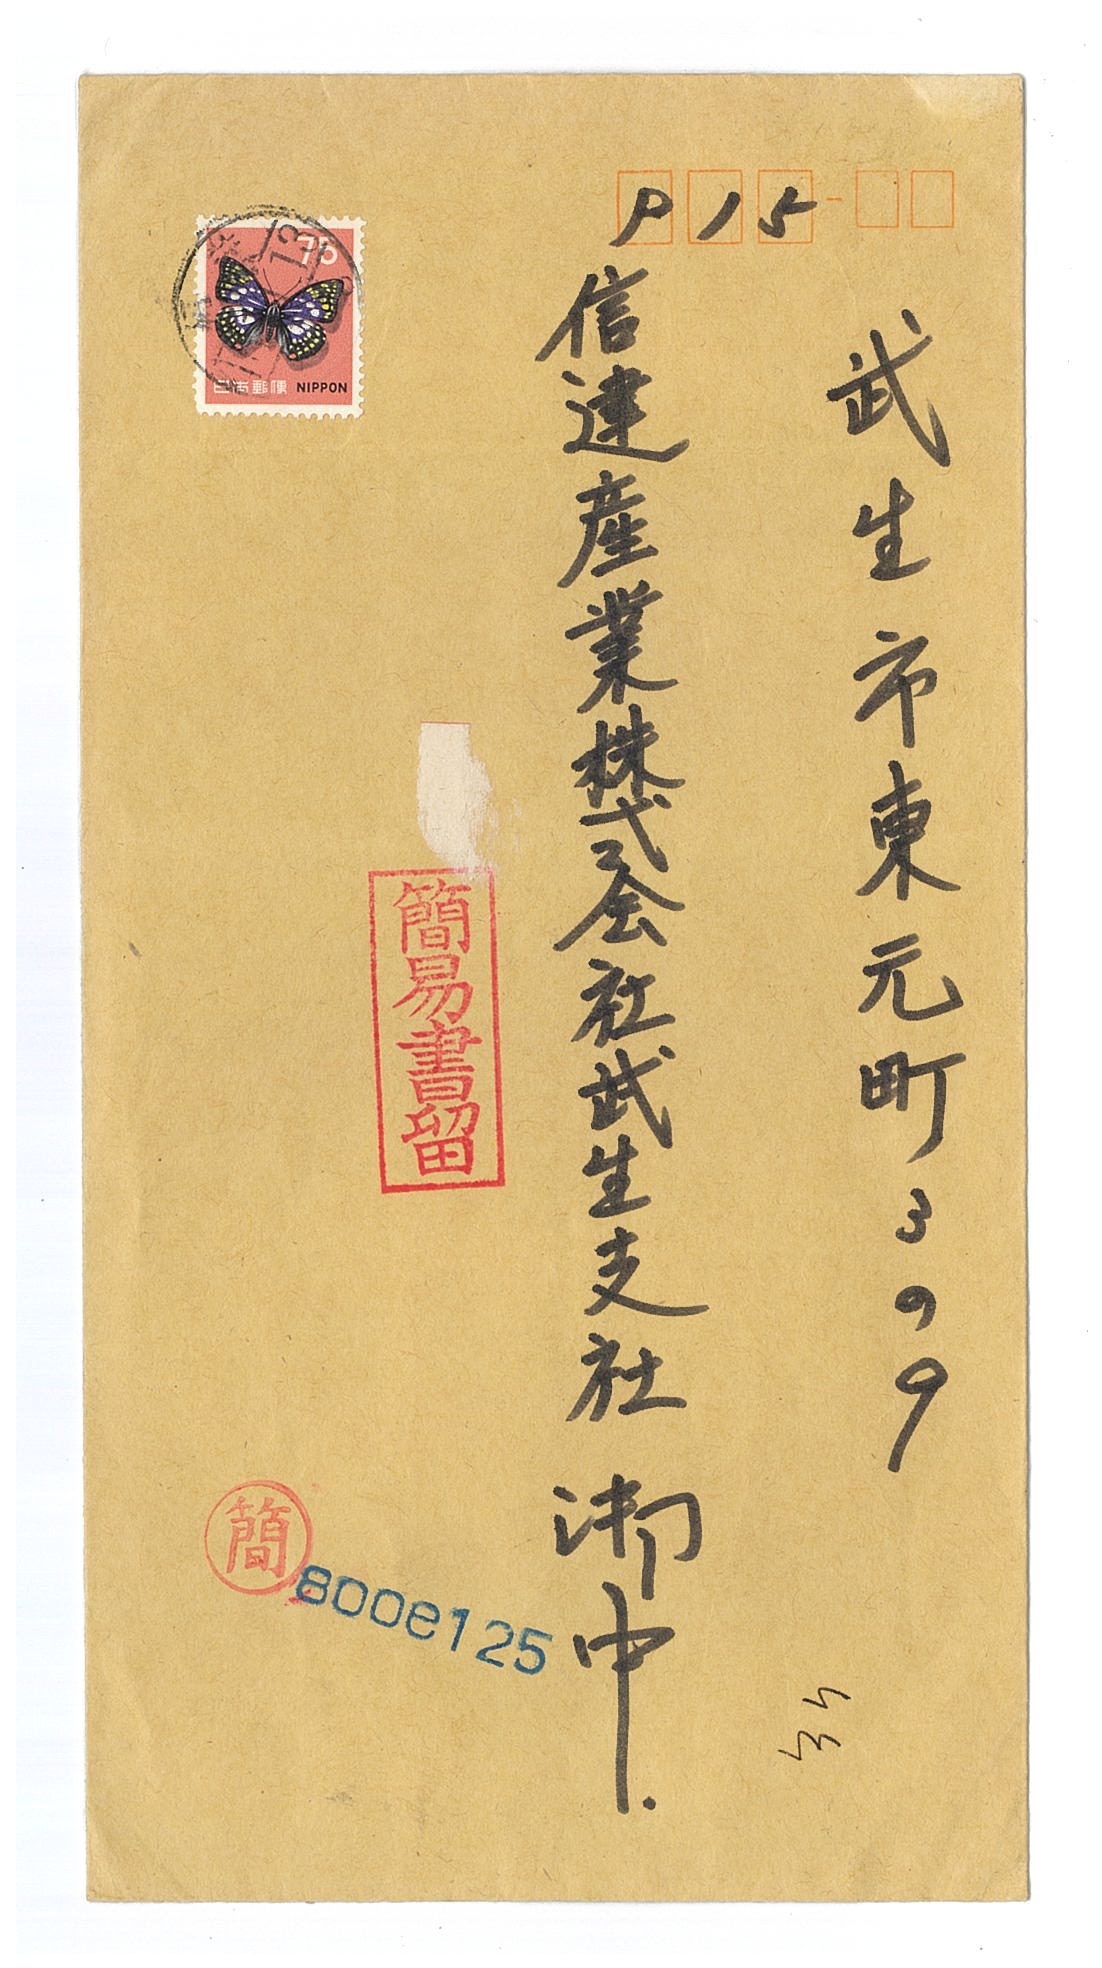 915
武生市東元町399
信建産業株式会社武生支社 御中.
75
日本郵便 NIPPON
簡易書留
簡
800e125